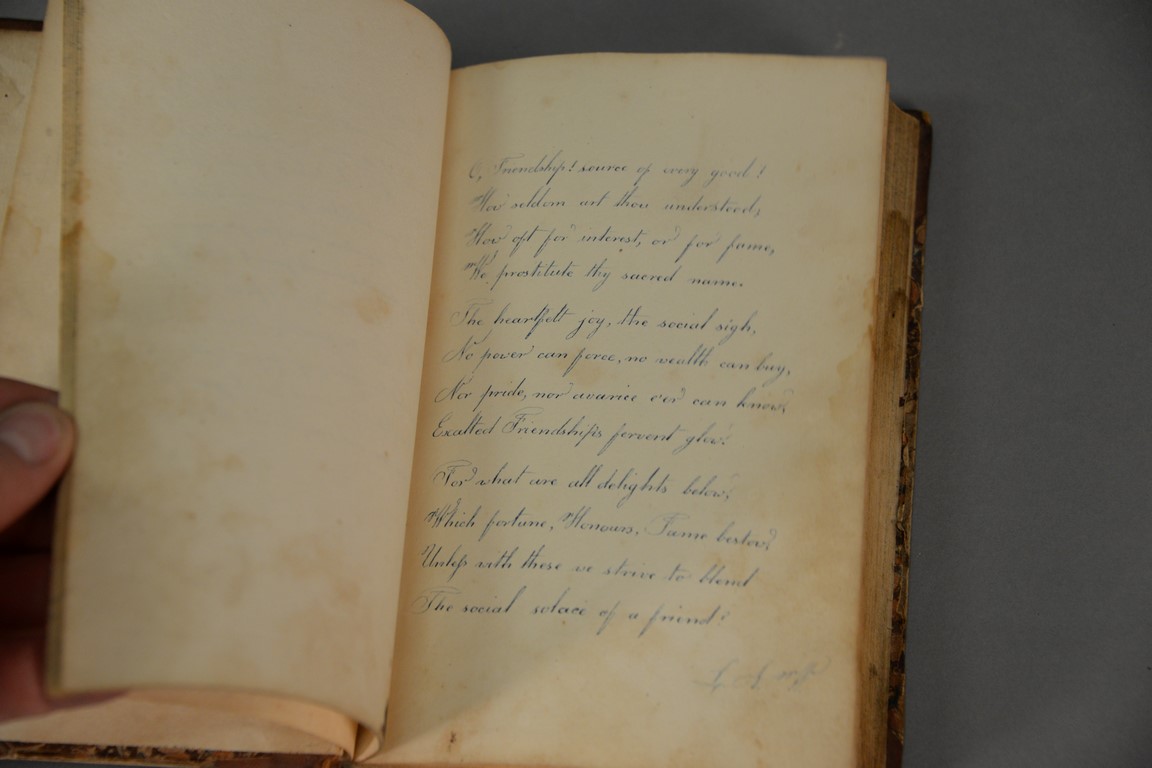 O, Friendship! source of every good!
How seldom art thou understood;
How oft for interest, or for fame,
We prostitute thy sacred name.
The heartfelt joy, the social sigh,
No power can force, no wealth can buy,
Nor pride, nor avarice e'er can know
Exalted Friendship's fervent glow.
For what are all delights below,
Which fortune, Honours, Fame bestow?
Unless with these we strive to blend
The social solace of a friend?